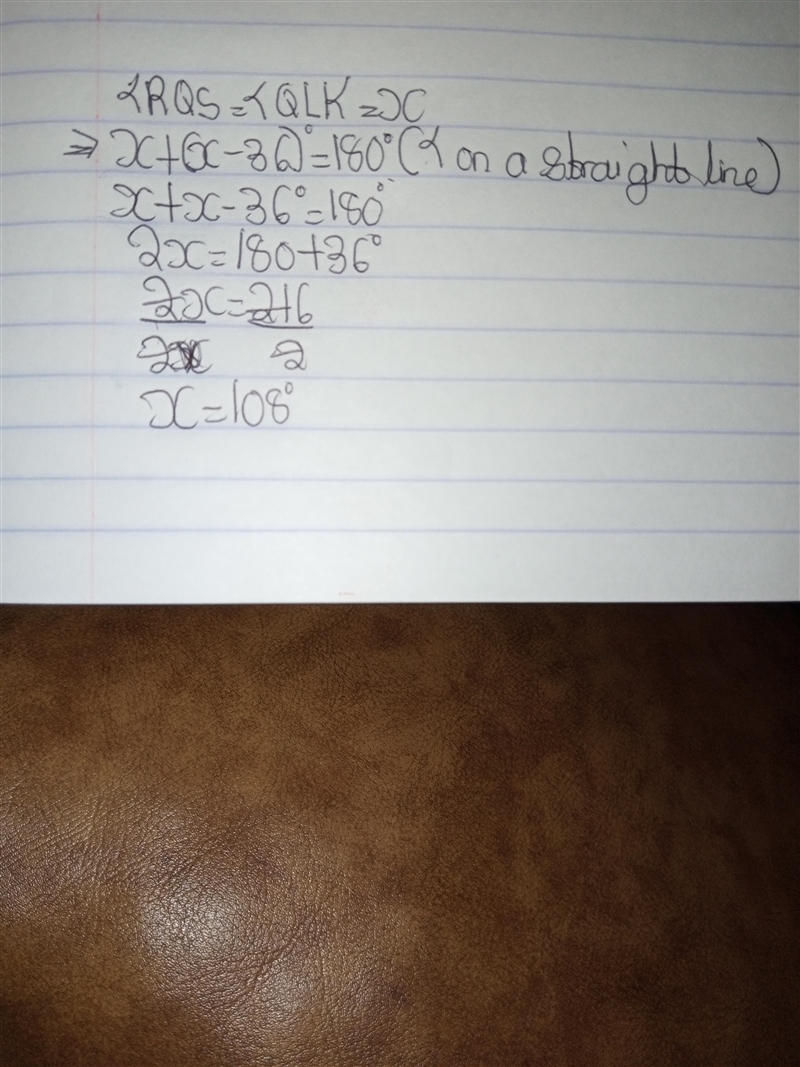 ∠RQS = ∠QLK = x
⇒ x + (x - 36)° = 180° (∠ on a straight line)
x + x - 36° = 180°
2x = 180 + 36°
2x = 216
2 2
x = 108°